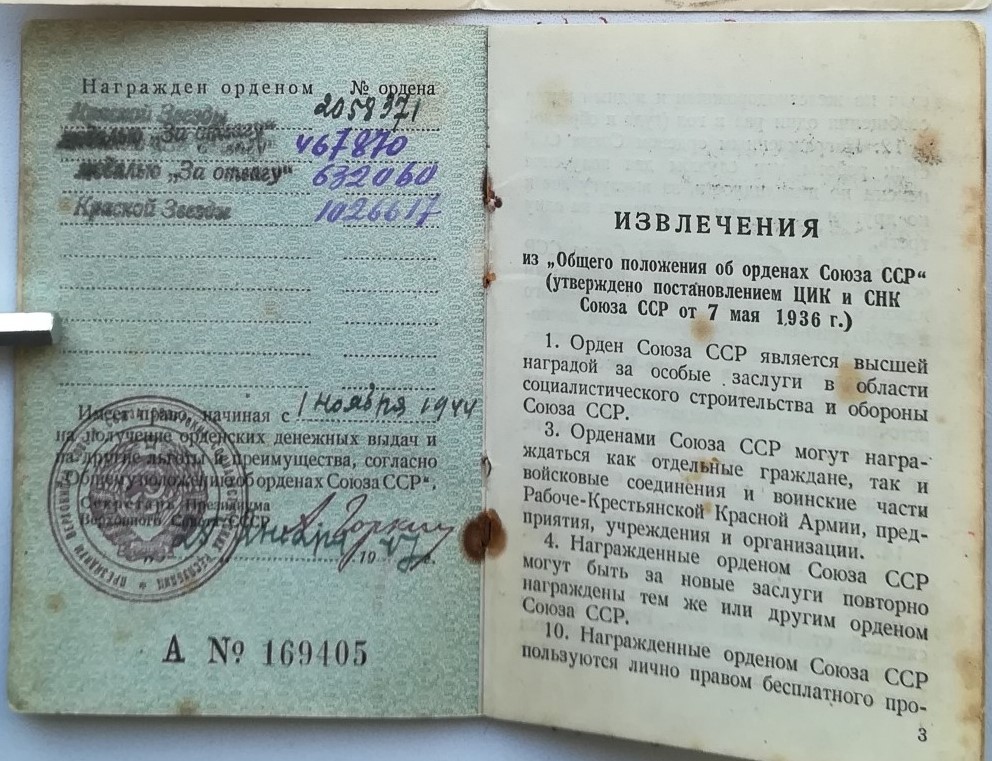 Награжден орденом № ордена
Красной Звезды 2058371
медалью „За отвагу" 467870
медалью „За отвагу" 632060
Краской Звезды 1026617
Имеет право, начиная с 1 ноября 1944
на получение орденских денежных выдач и
на другие льготы и преимущества, согласно
„Общему положению об орденах Союза ССР“.
Секретарь Президиума
Верховного Совета СССР
А Горкин
„25 января 1947 г.
А № 169405
ИЗВЛЕЧЕНИЯ
из „Общего положения об орденах Союза ССР“
(утверждено постановлением ЦИК и СНК
Союза ССР от 7 мая 1936 г.)
1. Орден Союза ССР является высшей
наградой за особые заслуги в области
социалистического строительства и обороны
Союза ССР.
3. Орденами Союза ССР могут награ-
ждаться как отдельные граждане, так и
войсковые соединения и воинские части
Рабоче-Крестьянской Красной Армии, пред-
приятия, учреждения и организации.
4. Награжденные орденом Союза ССР
могут быть за новые заслуги повторно
награждены тем же или другим орденом
Союза ССР.
10. Награжденные орденом Союза ССР
пользуются лично правом бесплатного про-
3